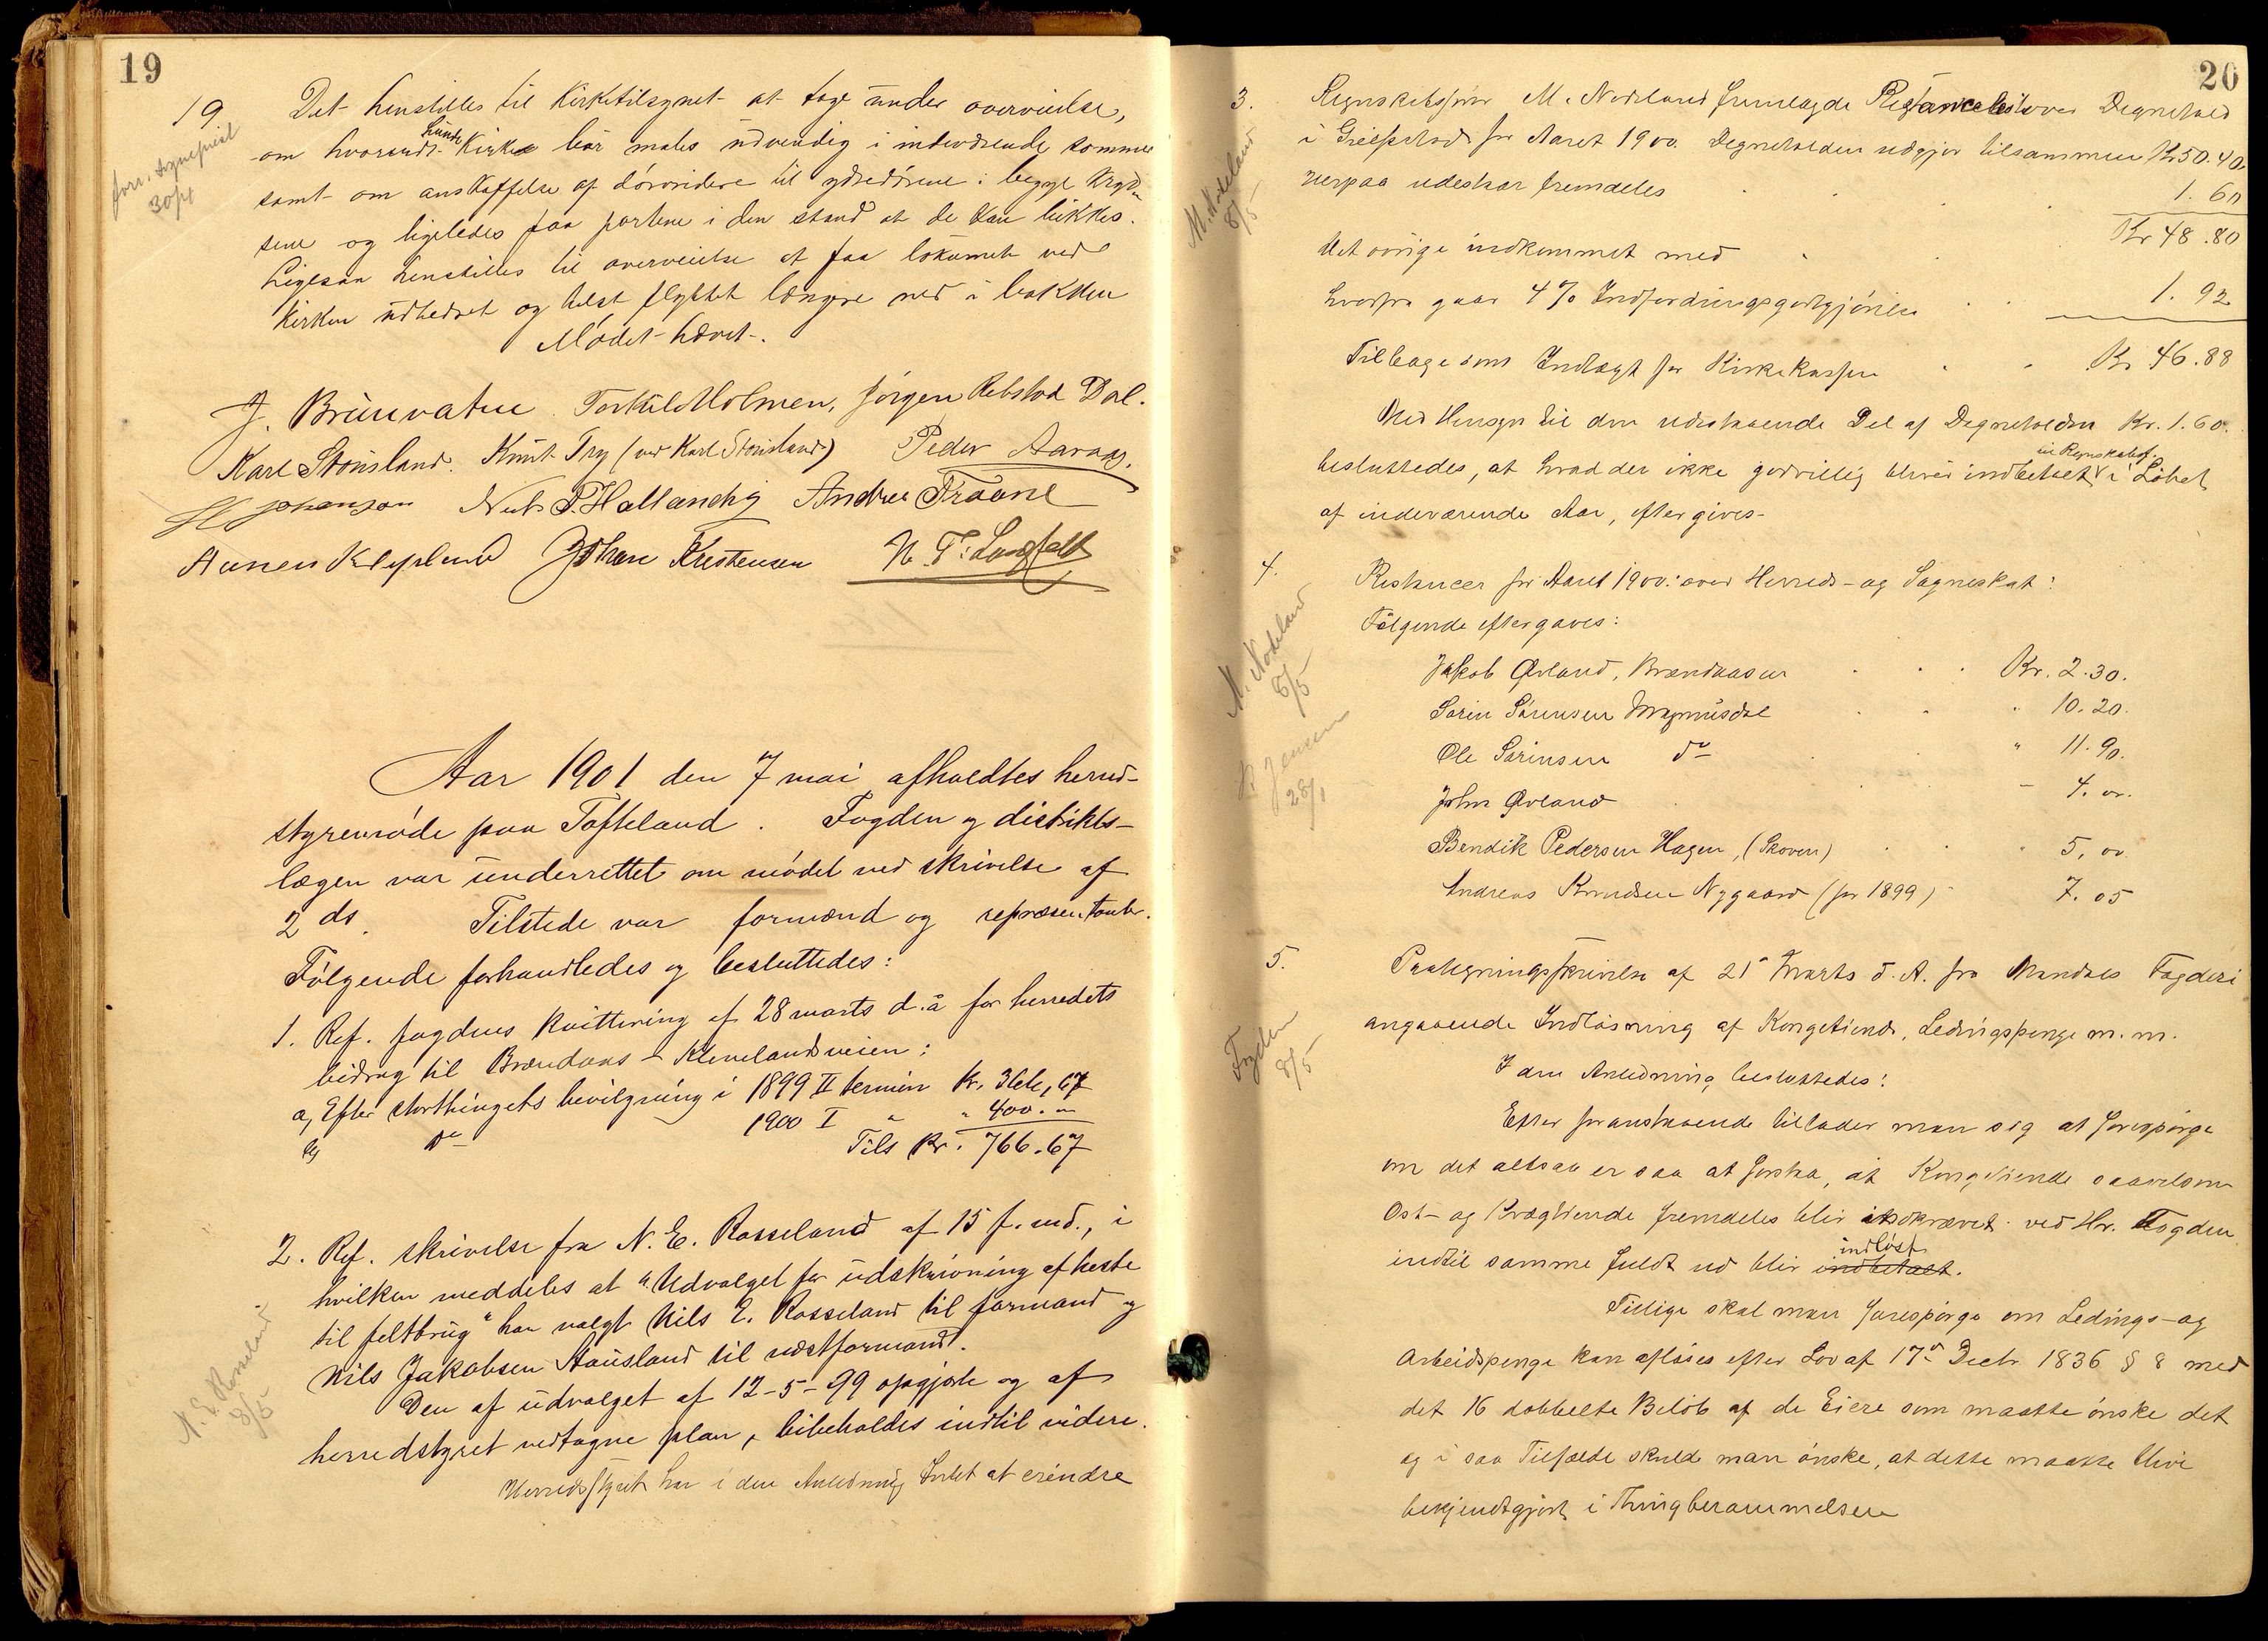 19
19 Det henstilles til Kirketilsynet at tage under overveielse,
om hvorvidt Lunde Kirke bør males udvendig i indeværende sommer
samt om anskaffelse af dørvridere til ydredørene i begge Kryds-
sene og ligeledes faa portene i den stand at de kan lukkes.
Ligesaa henstilles til overveielse at faa lokumet ved
kirken udbedret og helst flyttet længere ned i bakken
Mødet hævet.
forr. sogneprest
30/4
J. Brunvatne Torkild Holmen, Jørgen Rebstad Dal.
Karl Stousland. Knut Try (ved Karl Stousland) Peder Aaraas.
H Johansen Nub. P. Hallandvig Andreas Fraane
Aanen Kleplend Johan Kristensen N. T. Langfeldt
Aar 1901 den 7 mai afholdtes herreds-
styremøde paa Tofteland. Fogden og distrikts-
lægen var underrettet om mødet ved skrivelse af
2 ds. Tilstede var formænd og repræsentanter.
Følgende forhandledes og besluttedes:
1. Ref. fogdens kvittering af 28 marts d.å for herredets
bidrag til Brændaas - Klevelandsveien:
a, Efter storthingets bevilgning i 1899 II termin Kr. 366,67
b, do 1900 I " " 400.00
Tils Kr. 766.67
2. Ref. skrivelse fra N. E. Rosseland af 15 f. md., i
hvilken meddeles at "Udvalget for udskrivning af heste
til feltbrug" har valgt Nils E. Rosseland til formand og
Nils Jakobsen Stausland til næstformand.
Den af udvalget af 12-5-99 opgjorte og af
herredstyret vedtagne plan, bibeholdes indtil videre.
Herredsstyret har i den Anledning Intet at erindre
N. E. Rosseland
8/5
20
3. Regnskabsfører M. Nodeland fremlagde Restanceliste over Degnetold
i Greipstad for Aaret 1900. Degnetolden udgjør tilsammen Kr 50.40,
herpaa udestaar fremdeles 1.60
Kr 48.80
Det øvrige indkommet med
hvorfra gaar 4 % Indfordringsgodtgjørelse 1.92
Tilbage som Indtægt for Kirkekassen Kr 46.88
Med Hensyn til den udestaaende Del af Degnetolden Kr. 1.60.
besluttedes, at hvad der ikke godvillig bliver indbetalt til Regnskabsf. i Løbet
af indeværende Aar, eftergives.
M. Nodeland
8/5
4. Restancer for Aaret 1900: over Herreds- og Sogneskat:
Følgende eftergaves:
Jakob Øvland, Brændaasen Kr. 2.30.
Sørin Sørensen Magnusdal " 10.20.
Ole Sørinsen do " 11.90.
John Øvland - 4.00.
Bendik Pedersen Hagen, (Skoven) " 5,00
Andreas Knudsen Nygaard (for 1899) 7.05
M. Nodeland
8/5
K. Jensen
28/1
5. Paategningsskrivelse af 21de Marts d. A. fra Mandals Fogderi
angaaende Indløsning af Kongetiende, Ledingspenge m. m.
I den Anledning besluttedes:
Efter foranstaaende tillader man sig at forespørge
om det altsaa er saa at forstaa, at Kongetiende saavelsom
Ost- og Kvægtiende fremdeles blir indkrævet ved Hr. Fogden
indtil samme fuldt ud blir indbetalt. indløst
Tillige skal man forespørge om Ledings- og
Arbeidspenge kan afløses efter Lov af 17de Decbr 1836 § 8 med
det 16 dobbelte Beløb af de Eiere som maatte ønske det
og i saa Tilfælde skuld man ønske, at dette maatte blive
bekjendtgjort i Thingberammelsen
Fogden
8/5